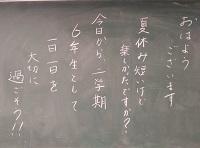 おはよう
ございます
夏休み短いけど
楽しかったですか?
今日から、二学期
6年生として
一日一日を
大切に
過ごそう!!